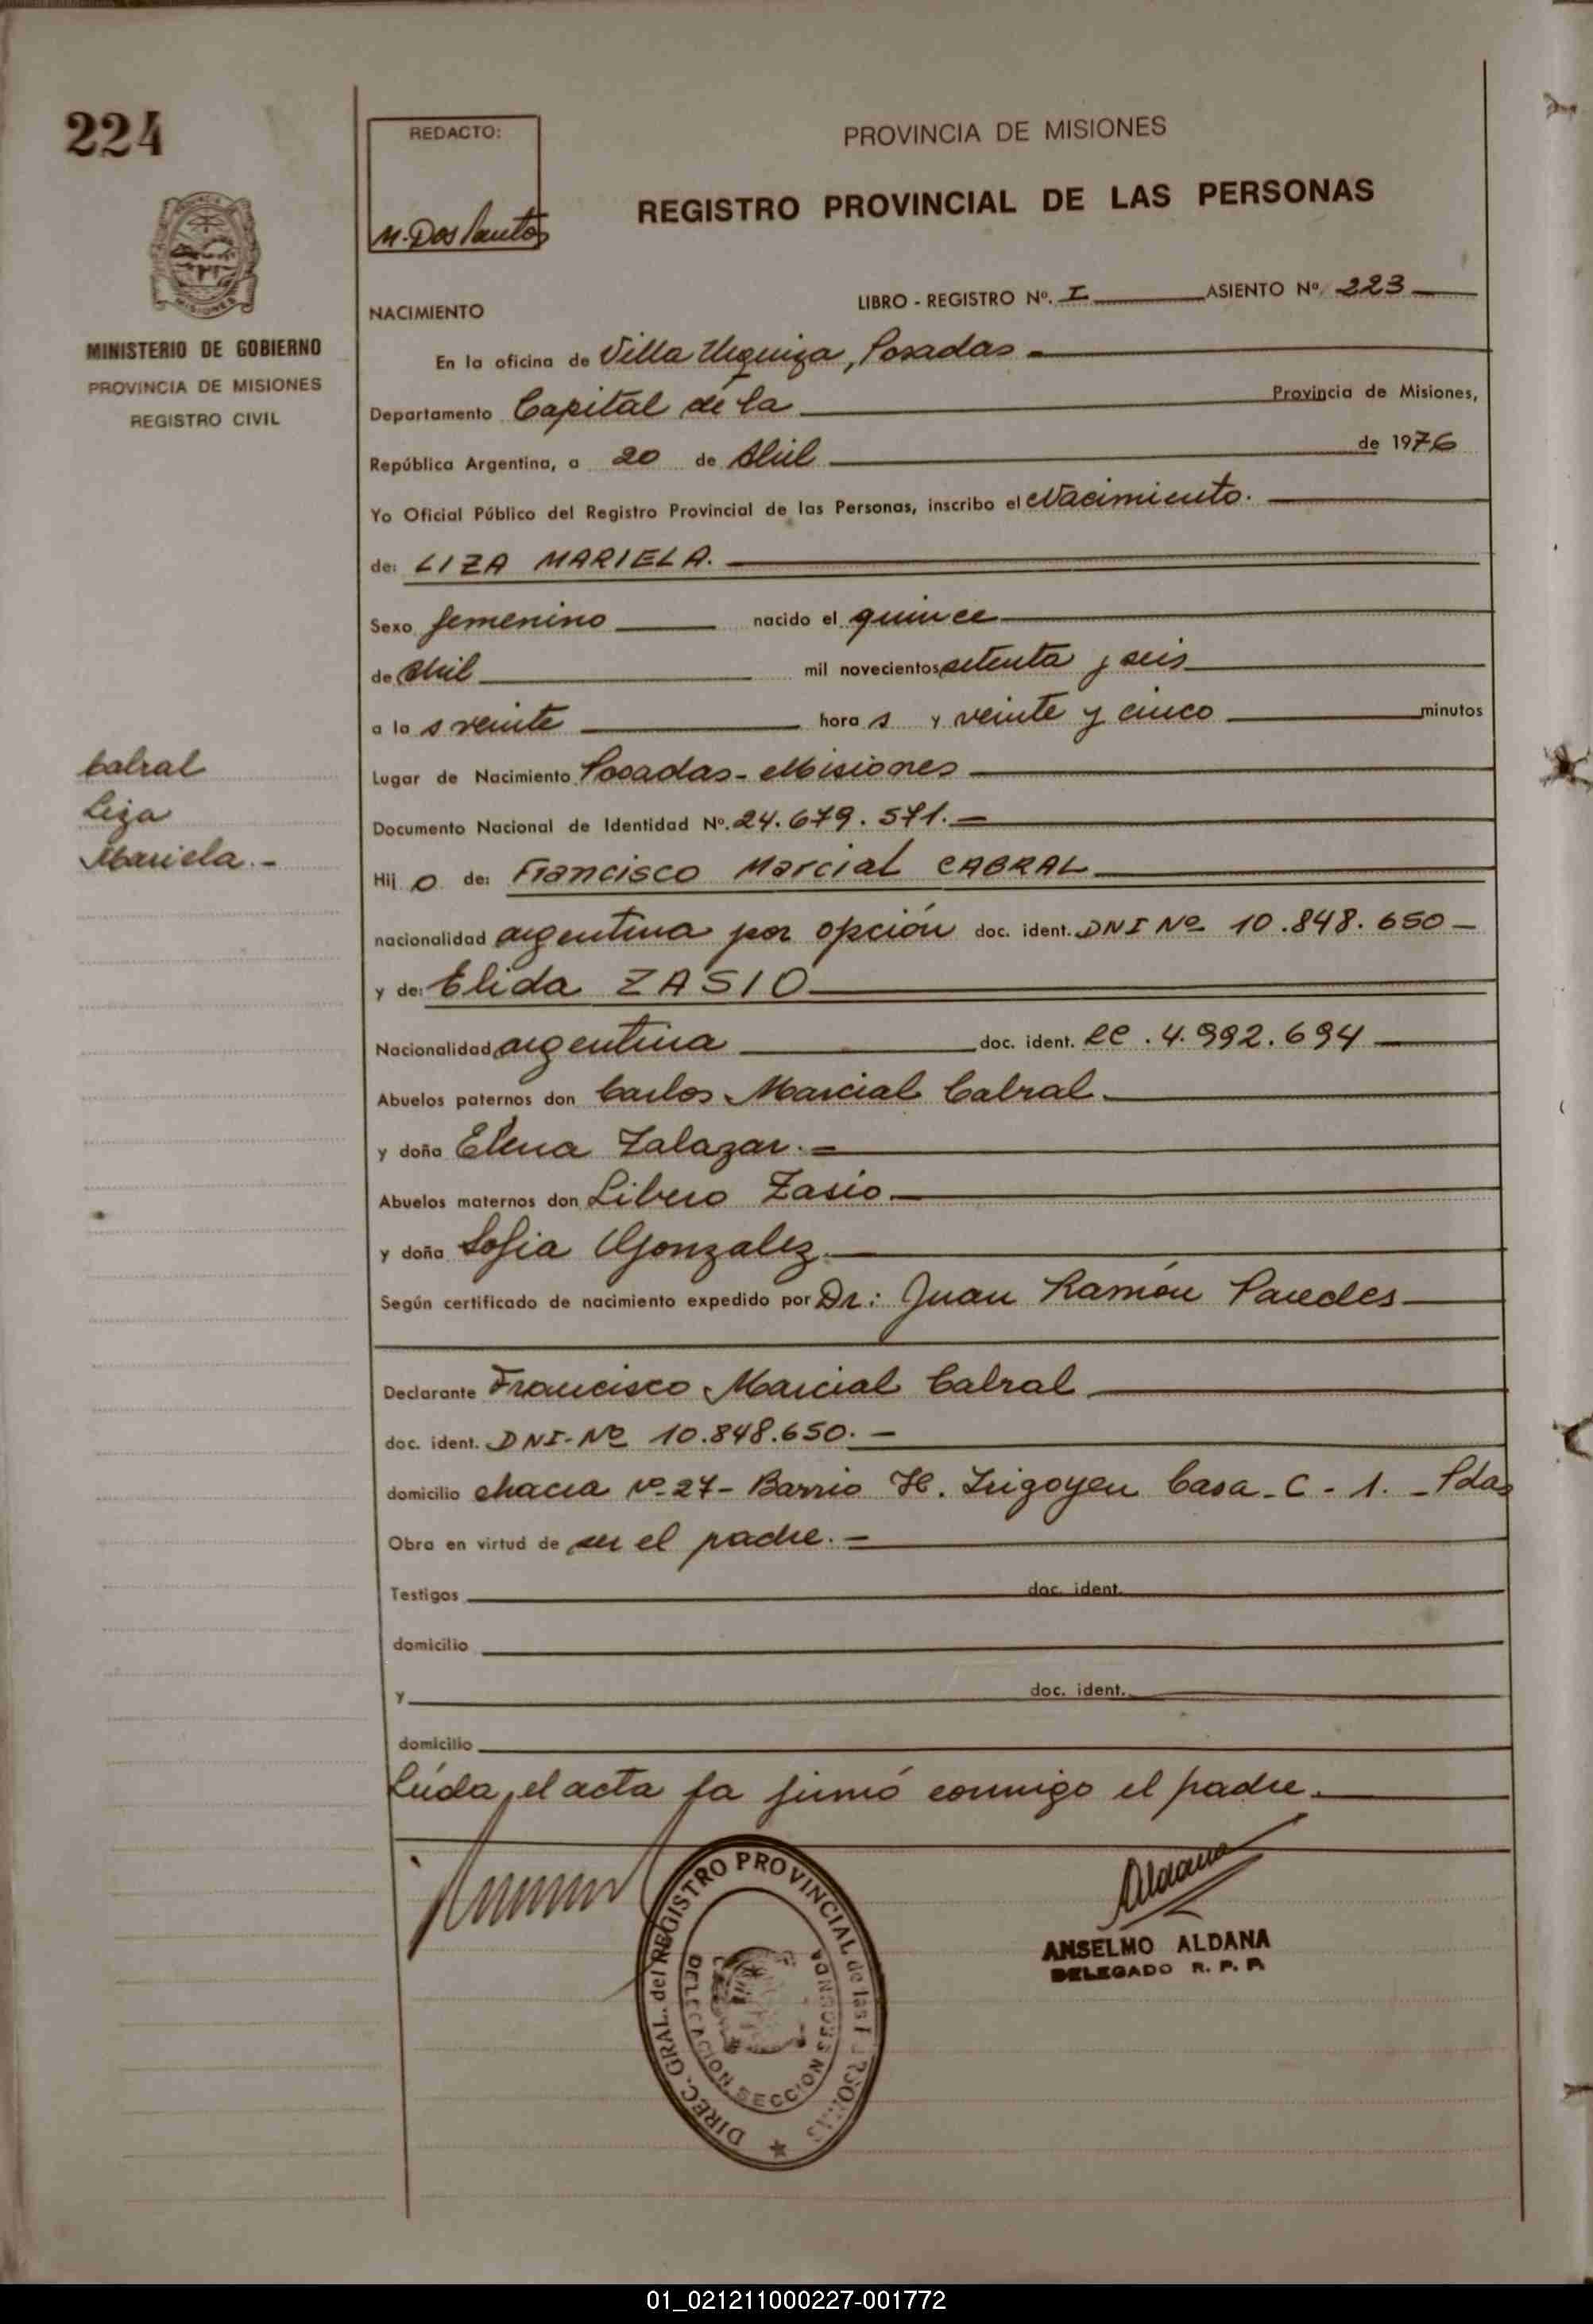 224
REDACTO:
M. Dos Santos
PROVINCIA DE MISIONES
REGISTRO PROVINCIAL DE LAS PERSONAS
MISIONES
MINISTERIO DE GOBIERNO
PROVINCIA DE MISIONES
REGISTRO CIVIL
NACIMIENTO
LIBRO - REGISTRO Nº. I ASIENTO Nº 223
En la oficina de Villa Urquiza, Posadas -
Departamento Capital de la Provincia de Misiones,
República Argentina, a 20 de Abril de 1976
Yo Oficial Público del Registro Provincial de las Personas, inscribo el Nacimiento.
de: LIZA MARIELA.
Sexo femenino nacido el quince
de Abril mil novecientos setenta y seis
a la s veinte hora s y veinte y cinco minutos
Cabral
Liza
Mariela.-
Lugar de Nacimiento Posadas - Misiones
Documento Nacional de Identidad Nº. 24.679.571.-
Hij o de: Francisco Marcial CABRAL
nacionalidad argentina por opción doc. ident. DNI Nº 10.848.650 -
y de: Elida ZASIO
Nacionalidad argentina doc. ident. LC. 4.992.694
Abuelos paternos don Carlos Marcial Cabral.
y doña Elena Zalazar.-
Abuelos maternos don Libero Zasio
y doña Sofia Gonzalez.
Según certificado de nacimiento expedido por Dr: Juan Ramón Paredes
Declarante Francisco Marcial Cabral
doc. ident. DNI-Nº 10.848.650.-
domicilio chacra nº 27- Barrio H. Irigoyen Casa - C - 1. - Pdas
Obra en virtud de ser el padre.-
Testigos doc. ident.
domicilio
y doc. ident.
domicilio
Leída, el acta la firmó conmigo el padre.
DIREC. GRAL. del REGISTRO PROVINCIAL de las PERSONAS
DELEGACION SECCION SEGUNDA
Aldana
ANSELMO ALDANA
DELEGADO R. P. P.
01_021211000227-001772